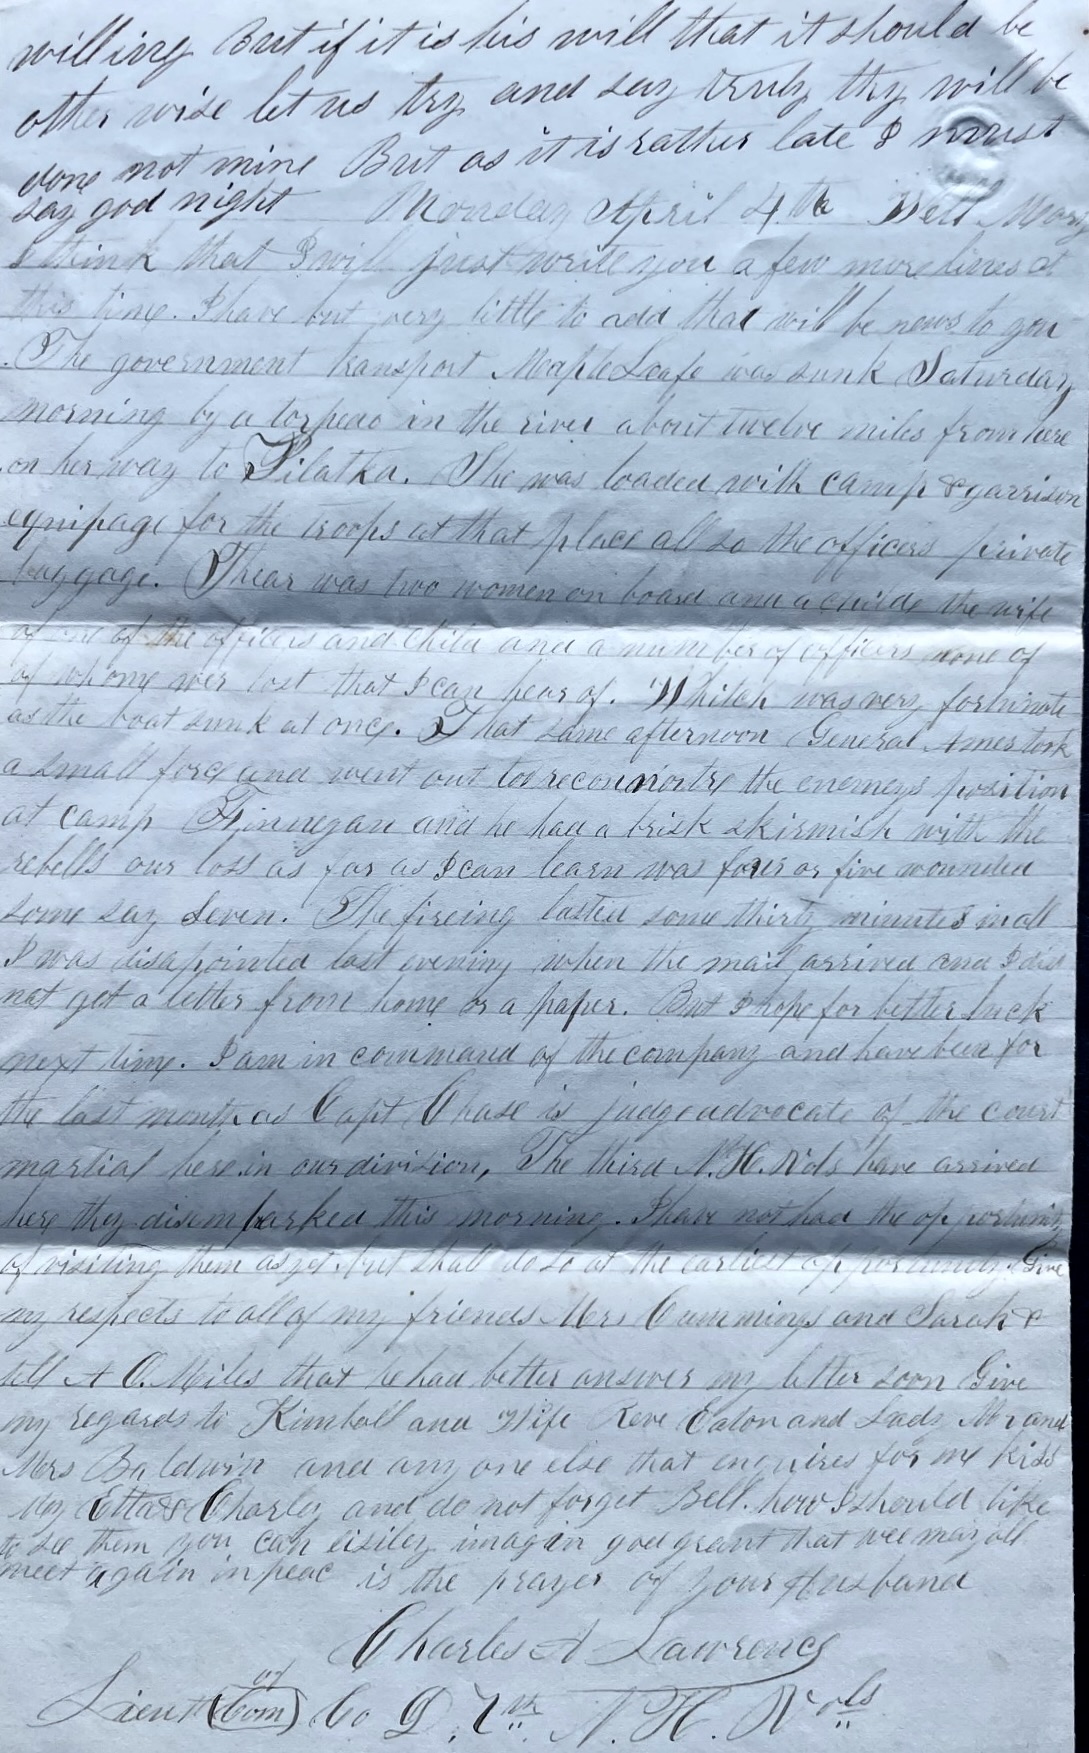 willing But if it is his will that it should be
other wise let us try and say truly thy will be
done not mine But as it is rather late I must
say god night Monday April 4th Well Mary
I think that I will just write you a few more lines at
this time. I have but very little to add that will be news to you
. The government transport Maple Leafe was sunk Saturday
morning by a torpedo in the river about twelve miles from here
on her way to Pilatka. She was loaded with camp & garrison
equipage for the troops at that place all so the officers private
baggage. Thear was two women on board and a childe the wife
of one of the officers and child and a number of officers none of
of whome wer lost that I can hear of. Whitch was very fortunate
as the boat sunk at once. That same afternoon General Ames took
a small force and went out to reconnoitre the enemeys position
at camp Finnegan and he had a brisk skirmish with the
rebells our loss as far as I can learn was four or five wounded
some say seven. The fireing lasted some thirty minutes in all
I was disapointed last evening when the mail arrived and I did
not get a letter from home or a paper. But I hope for better luck
next time. I am in command of the company and have been for
the last month as Capt Chase is judge advocate of the court
martial here in our division, The third N.H. Vols have arrived
here they disembarked this morning. I have not had the opportunity
of visiting them as yet but shall do so at the earliest opportunity. Give
my respects to all of my friends Mrs Cummings and Sarah &
tell A O. Miles that he had better answer my letter soon Give
my regards to Kimball and Wife Reve Eaton and Lady Mr and
Mrs Baldwin and any one else that enquires for me kiss
my Etta & Charley and do not forget Bell. how I should like
to see them you can eisiley imagin god grant that wee may all
meet again in peac is the prayer of your Husband
Charles A Lawrence
Lieut (Com) of Co D. 7th N. H. Vols